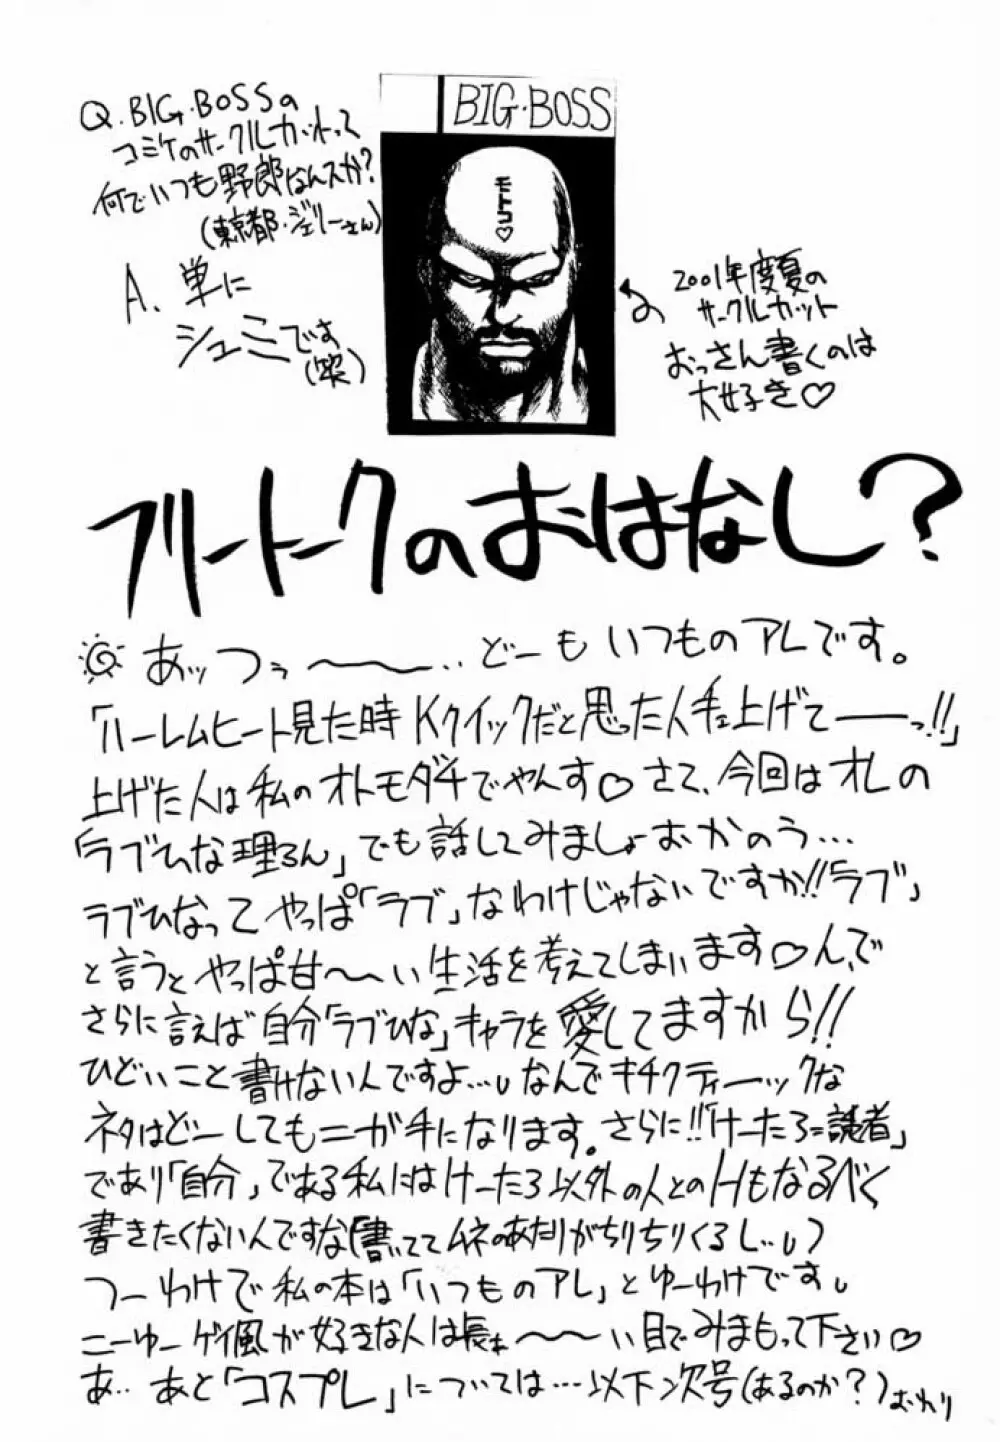 Q.BIG・BOSSの
コミケのサークルカットって
何でいつも野郎なんスか?
(東京都・ジェリーさん)
A、単に
シュミです
(笑)
BIG・BOSS
モトコ♡
2001年度夏の
サークルカット
おっさん書くのは
大好き♡
フリートークのおはなし?
あッつぅ〜〜‥どーもいつものアレです。
「ハーレムヒート見た時Kクイックだと思った人手ェ上げてーーっ!!」
上げた人は私のオトモダチでやんす♡さて、今回はオレの
「ラブひな理ろん」でも話してみましょおかのう…
ラブひなってやっぱ「ラブ」なわけじゃないですか!!「ラブ」
と言うとやっぱ甘〜い生活を考えてしまいます♡んで
さらに言えば自分「ラブひな」キャラを愛してますから!!
ひどいこと書けない人ですよ…なんでキチクティーックな
ネタはどーしてもニガ手になります。さらに!!「けーたろ=読者」
であり「自分」である私にはけーたろ以外の人とのHもなるべく
書きたくない人ですな(書いててムネのあたりがちりちりくるし‥)
つーわけで私の本は「いつものアレ」とゆーわけです
ニーゆーゲイ風が好きな人は長ぁ〜〜い目でみまもって下さい♡
あ‥あと「コスプレ」については…以下次号(あるのか?)おわり